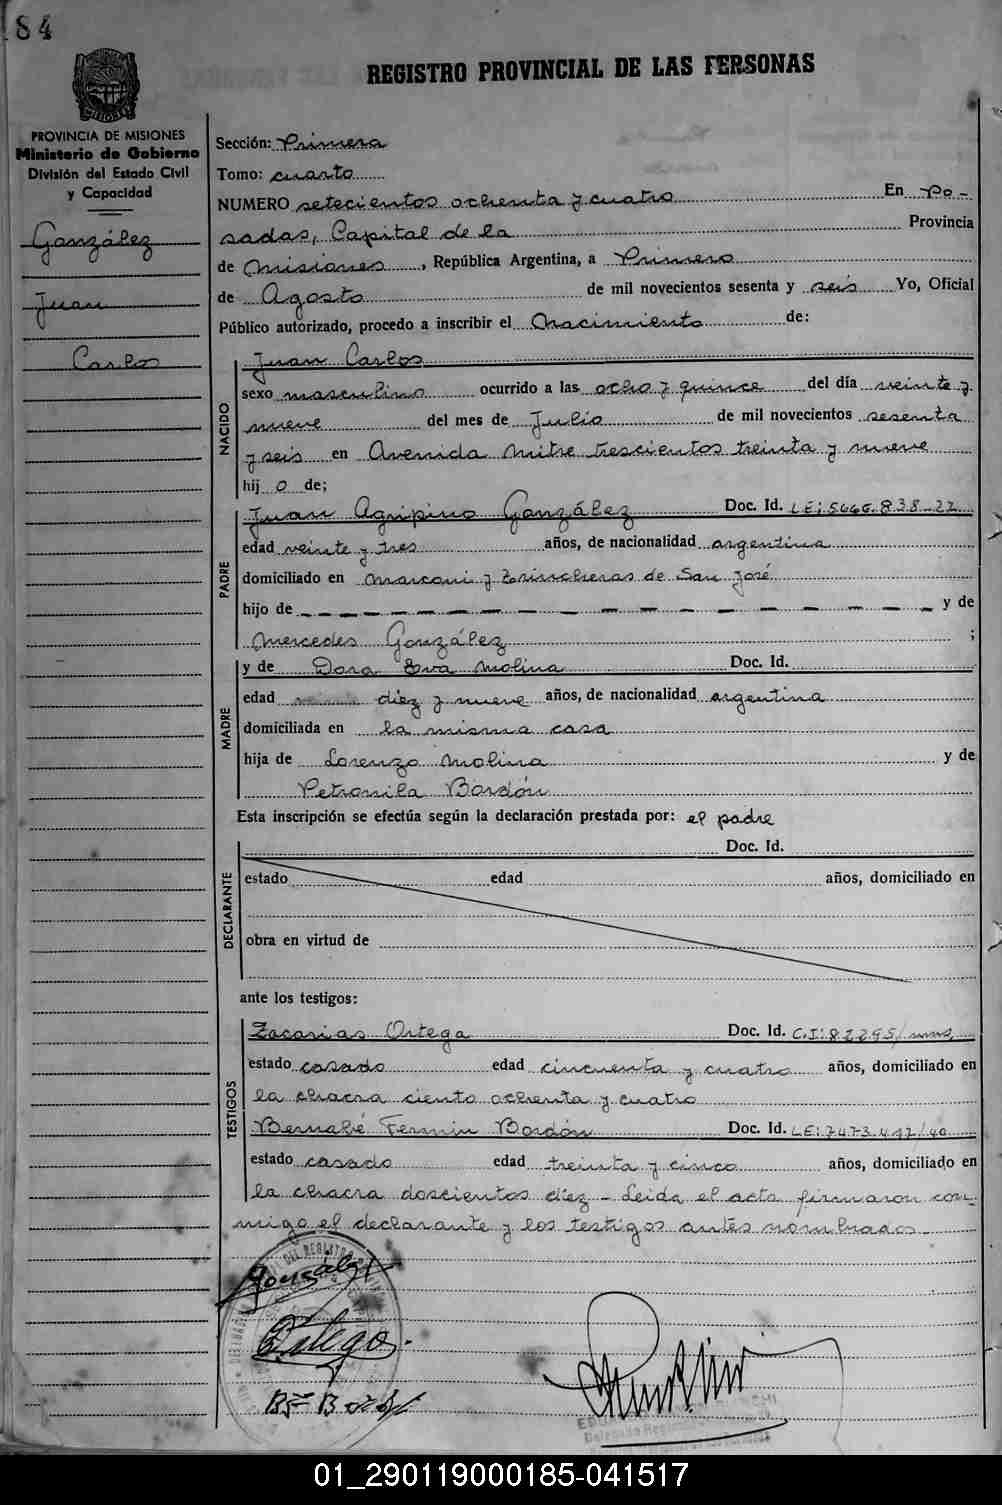 84
PROVINCIA DE MISIONES
Ministerio de Gobierno
División del Estado Civil
y Capacidad
González
Juan
Carlos
REGISTRO PROVINCIAL DE LAS PERSONAS
Sección: Primera
Tomo: cuarto
NUMERO setecientos ochenta y cuatro En Po-
sadas, Capital de la Provincia
de Misiones, República Argentina, a Primero
de Agosto de mil novecientos sesenta y seis Yo, Oficial
Público autorizado, procedo a inscribir el Nacimiento de:
NACIDO
Juan Carlos
sexo masculino ocurrido a las ocho y quince del día veinte y
nueve del mes de Julio de mil novecientos sesenta
y seis en Avenida Mitre trescientos treinta y nueve
hij o de;
PADRE
Juan Agripino González Doc. Id. LE:
edad veinte y tres años, de nacionalidad argentina
domiciliado en Marconi y Trincheras de San José
hijo de y de
Mercedes González ;
MADRE
y de Dora Eva Molina Doc. Id.
edad diez y nueve años, de nacionalidad argentina
domiciliada en la misma casa
hija de Lorenzo Molina y de
Petronila Bordón
Esta inscripción se efectúa según la declaración prestada por: el padre
DECLARANTE
Doc. Id.
estado edad años, domiciliado en
obra en virtud de
ante los testigos:
TESTIGOS
Zacarias Ortega Doc. Id. C.I: 82295/
estado casado edad cincuenta y cuatro años, domiciliado en
la chacra ciento ochenta y cuatro
Bernabé Fermin Bordón Doc. Id. LE:
estado casado edad treinta y cinco años, domiciliado en
la chacra doscientos diez - Leida el acta firmaron con-
migo el declarante y los testigos antes nombrados
González
Ortega
01_290119000185-041517